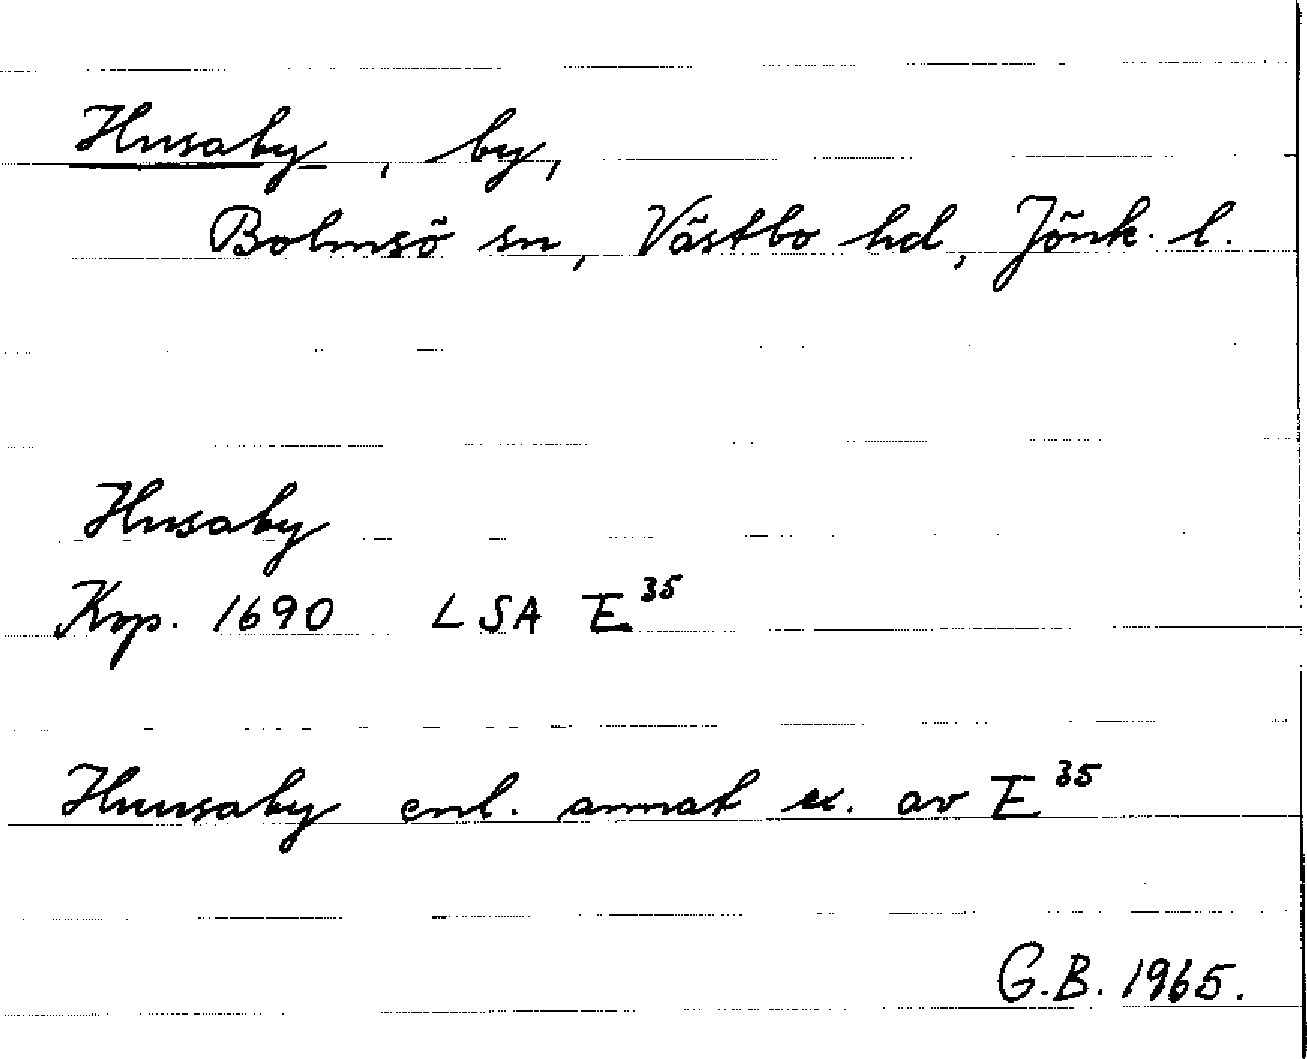 Husaby, by,
Bolmsö sn, Västbo hd, Jönk. l.
Husaby
Krp. 1690 LSA E³⁵
Huusaby enl. annat ex. av E³⁵
G.B. 1965.